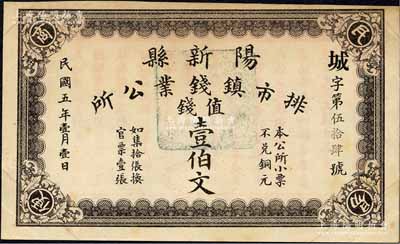 陽新縣
排市鎮錢業公所
值錢
壹伯文
城字第伍拾肆號
本公所小票
不兌銅元
如集拾張換
官票壹張
民國五年壹月壹日